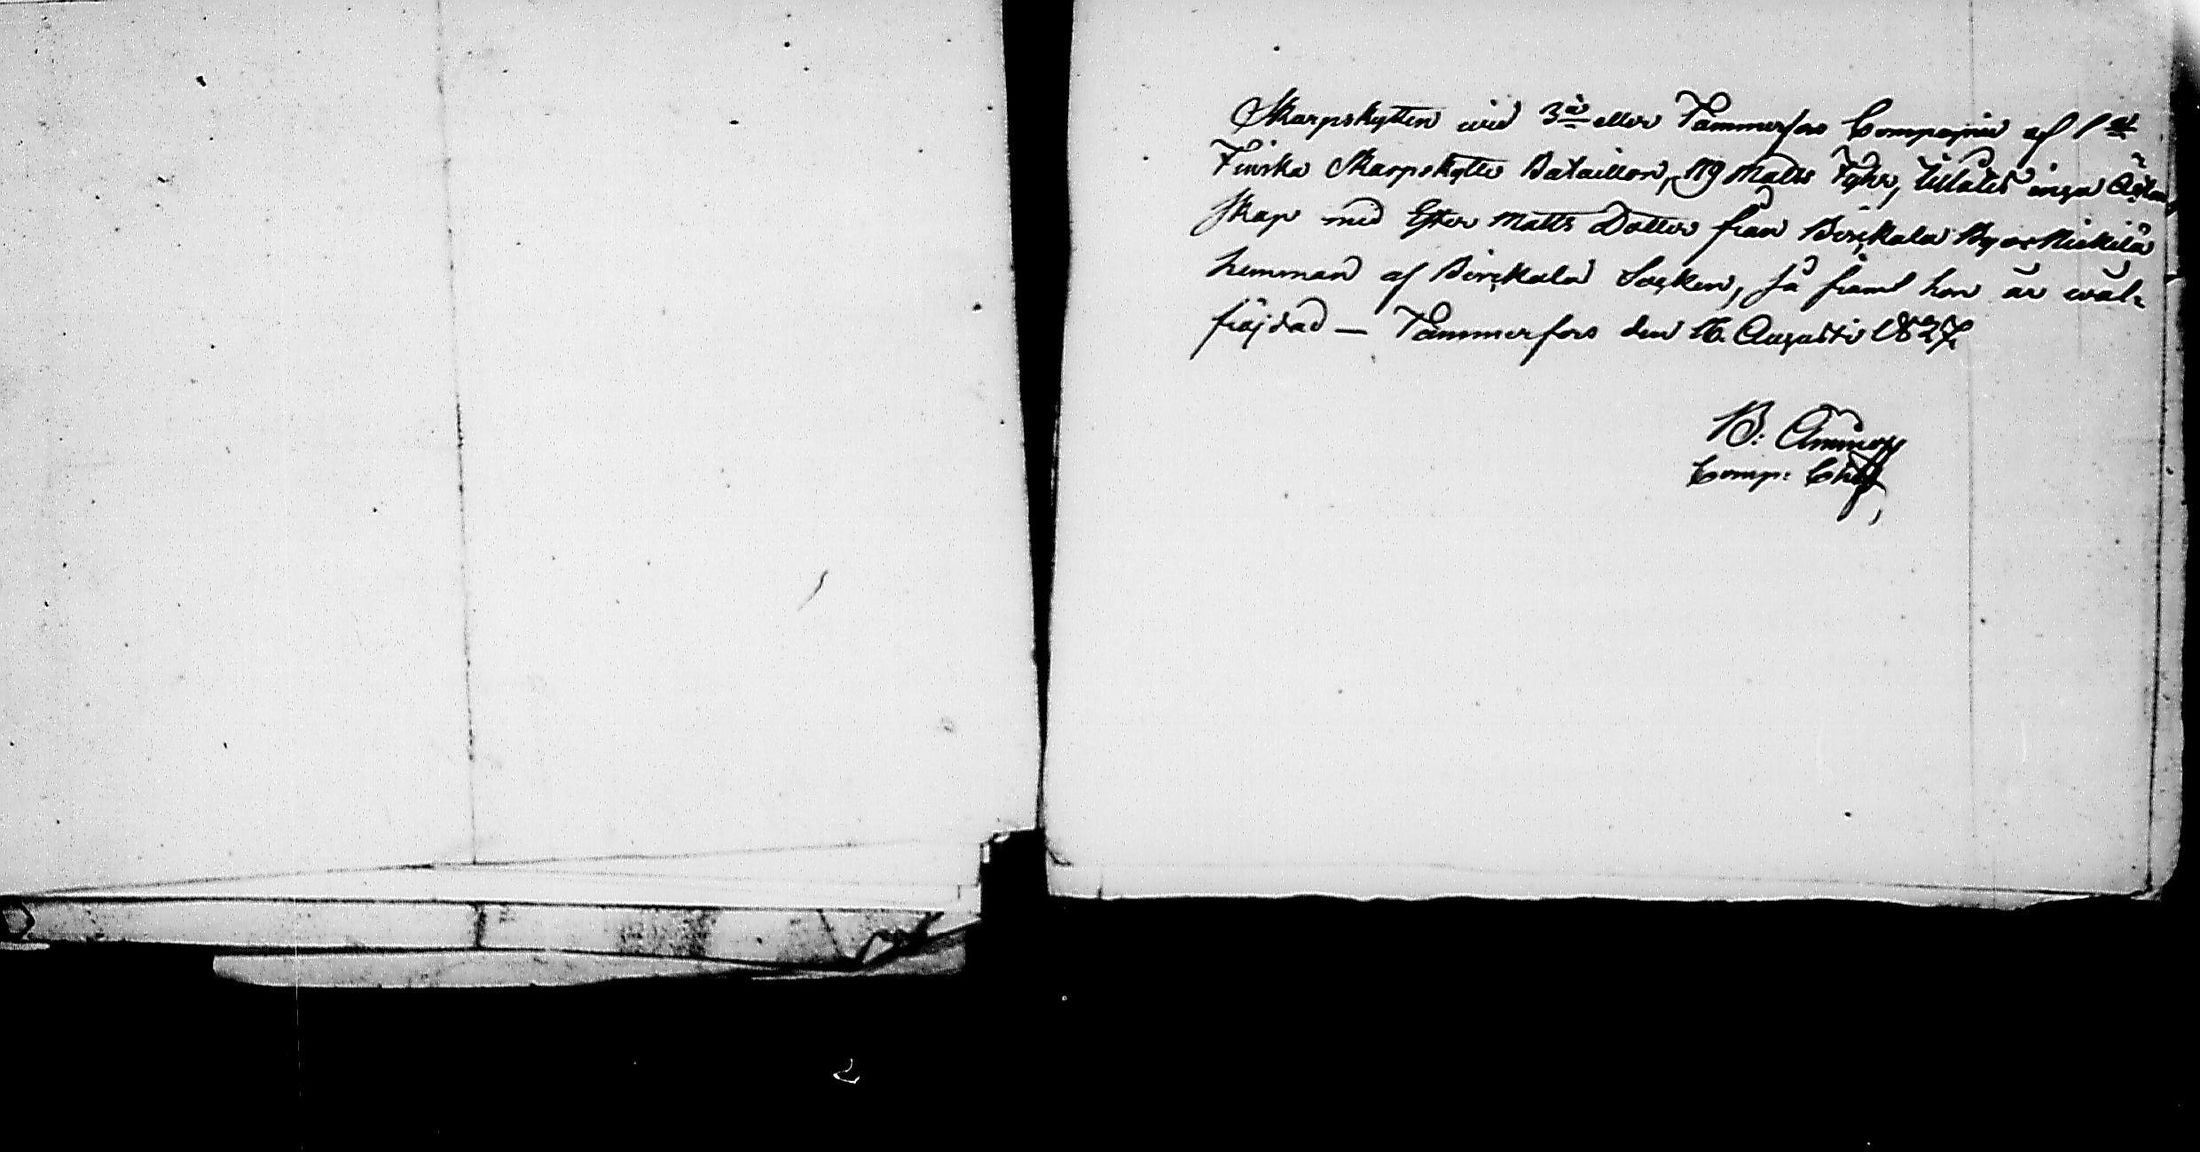 Skarpskytten wid 3ie eller Tammerfors Compagnie af 1sta
Finska Skarpskytte Bataillon, Matts Fyhr, tillåtes ingå Ägten-
skap med Ester Matts Dotter från Birckala By oc
hemman af Birckala Socken, så framt hon är wäl-
fräjdad — Tammerfors den 16. Augusti 1827.
B:
Comp: Cheff,